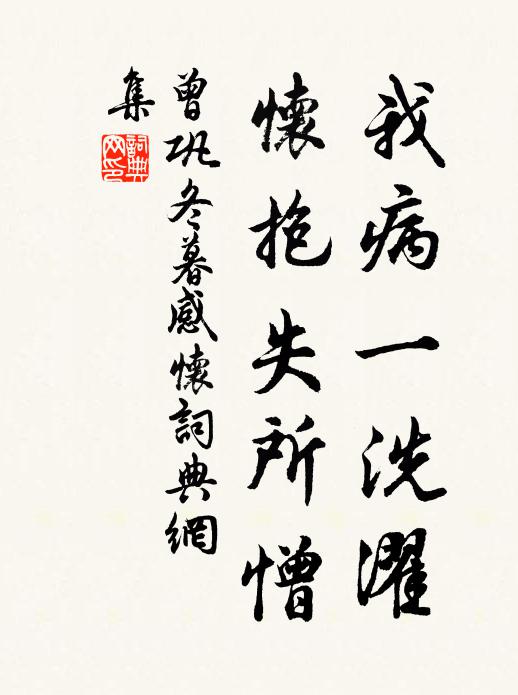 我病一洗濯
懷抱失所憎
曾巩冬暮感懷詞典網
集
詞典
网印